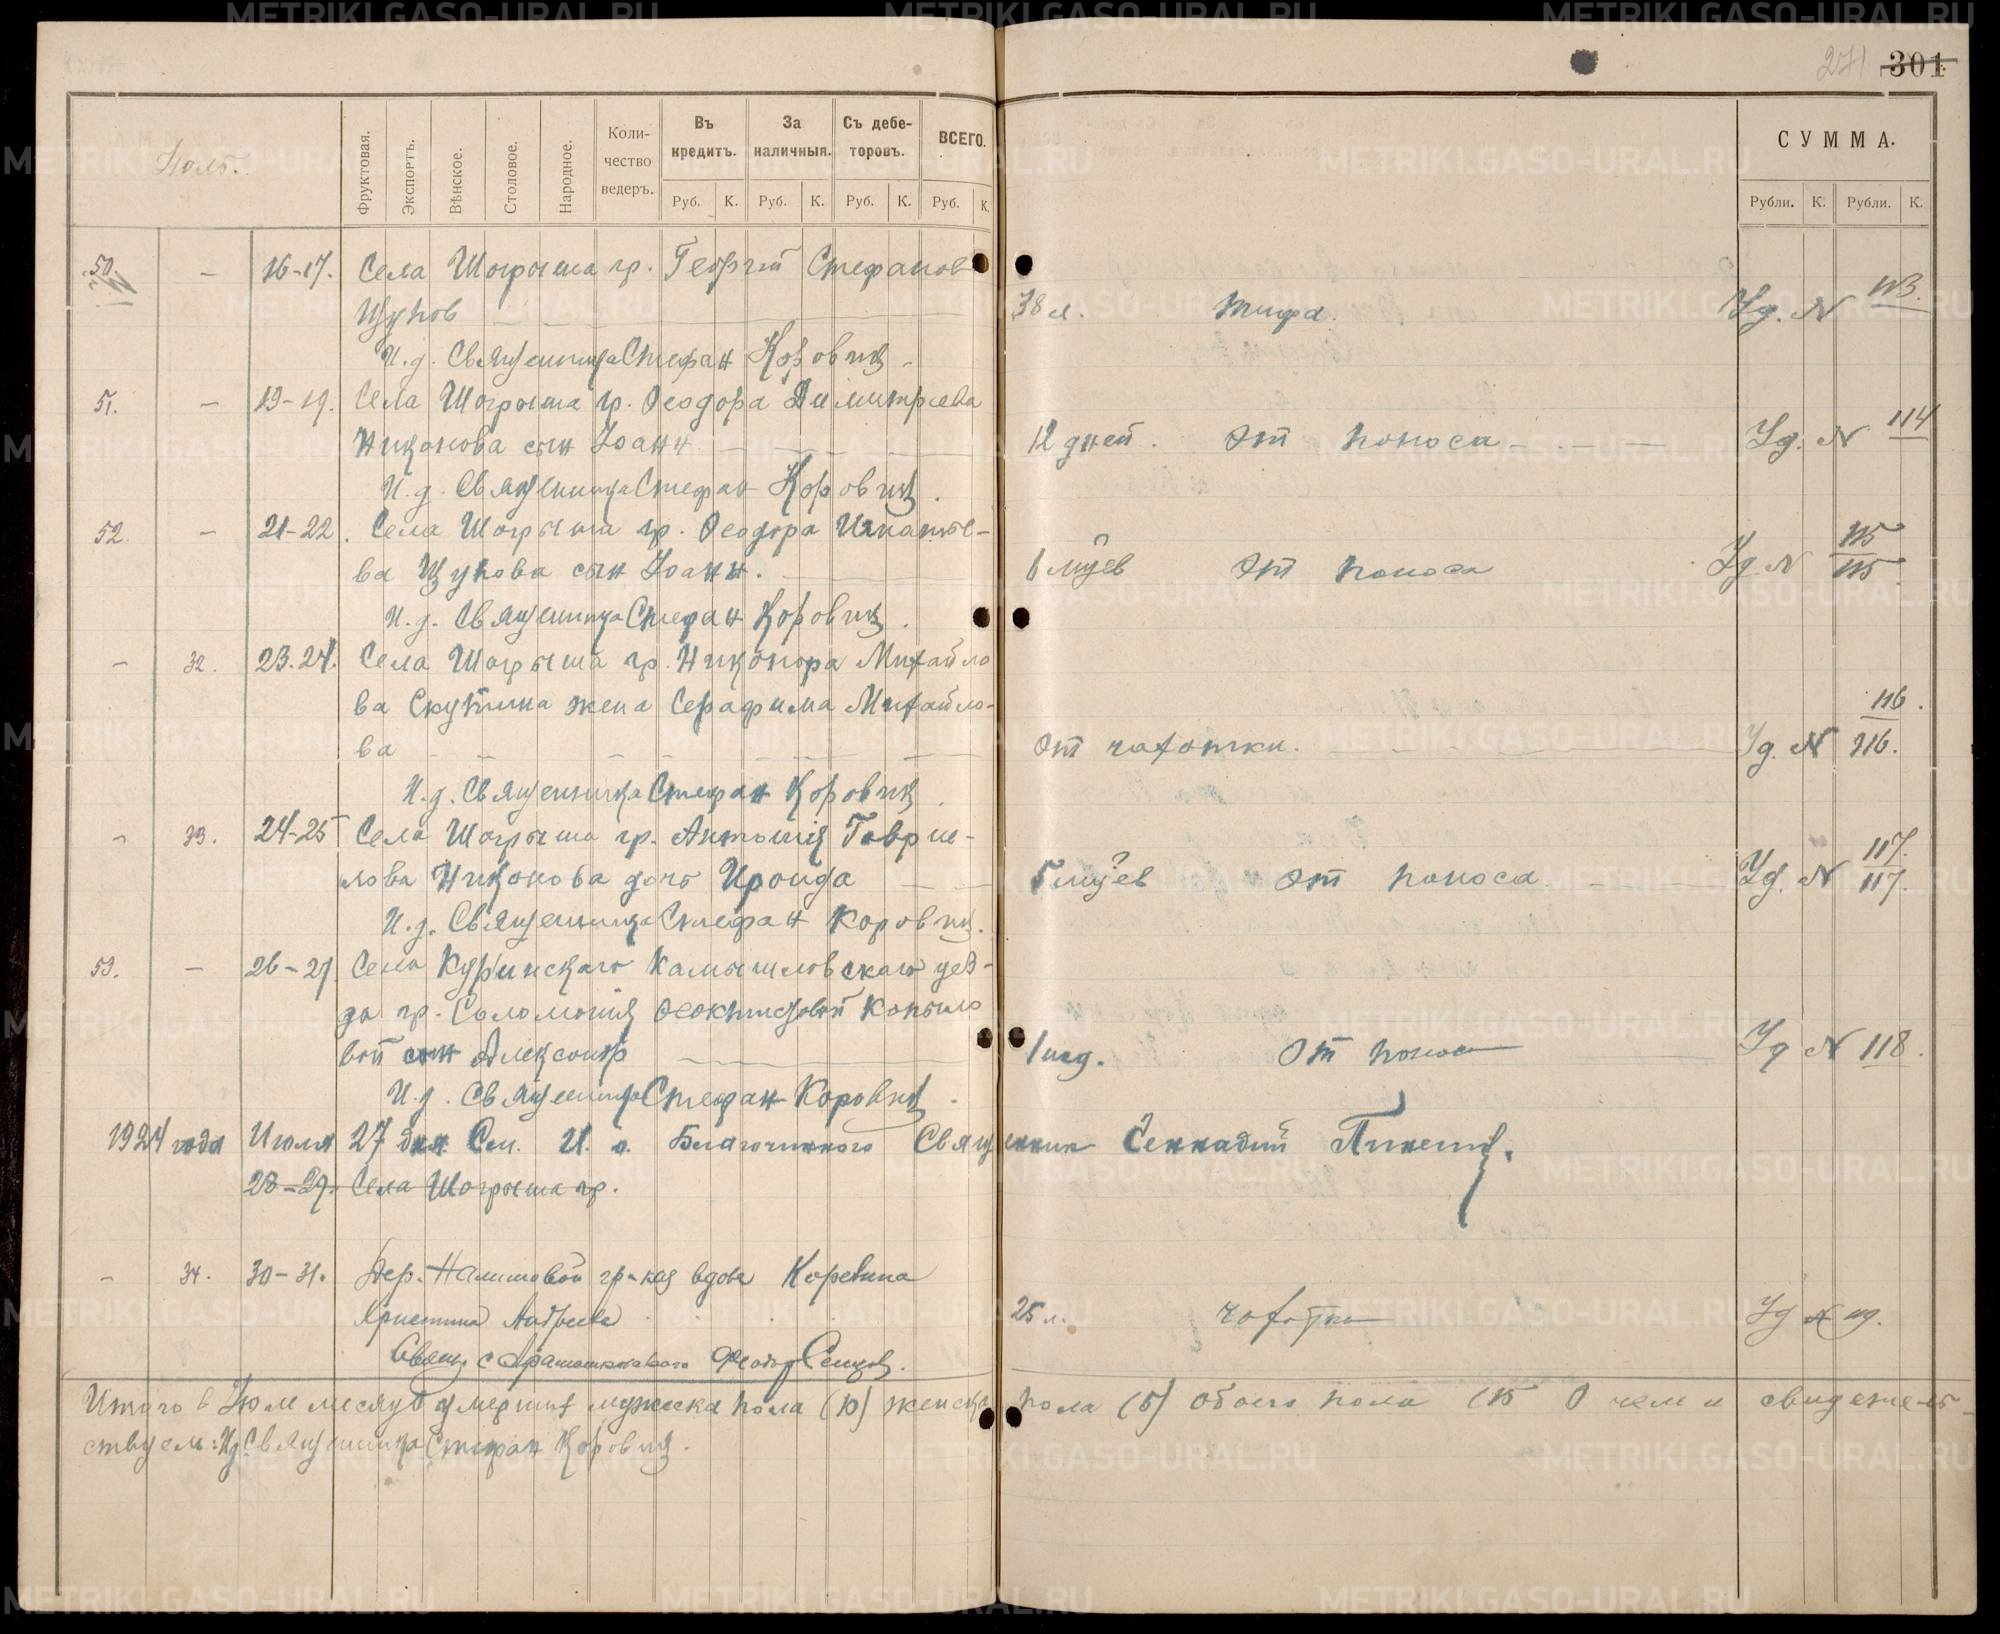 271 301
Іюль.
Фруктовая. Экспортъ. Вѣнское. Столовое. Народное. Коли-чество ведеръ. Въ кредитъ. За наличныя. Съ дебе-торовъ. ВСЕГО.
Руб. К. Руб. К. Руб. К. Руб. К.
СУММА.
Рубли. К. Рубли. К.
50. — 16-17. Села Шогрыша гр. Георгій Стефанов
Щупов 38 л. тифа. Уд. N 113.
И.д. Священника Стефан Коровин
51. — 19-19. Села Шогрыша гр. Ѳеодора Димитриева
Никонова сын Іоанн 12 дней. От поноса Уд. N 114
И.д. Священника Стефан Коровин.
52. — 21-22. Села Шогрыша гр. Ѳеодора Игнатье-
ва Щупова сын Іоанн. 6 м-цев От поноса Уд. N 115 115
И.д. Священника Стефан Коровин.
— 32. 23.24. Села Шогрыша гр. Никонора Михайло
ва Скутина жена Серафима Михайло-
ва От чахотки. Уд. N 116. 116.
И.д. Священника Стефан Коровин.
— 33. 24-25 Села Шогрыша гр. Антонія Гаврии-
лова Никонова дочь Ироида 5 м-цев От поноса Уд. N 117. 117.
И.д. Священника Стефан Коровин.
53. — 26-27 Села Куринскаго Камышловскаго уез-
да гр. Соломонія Ѳеоктистовой Копыло
вой сын Александр 1 нед. От поноса Уд N 118.
И.д. Священника Стефан Коровин.
1924 года Июля 27 дня См. И. о. Благочинного Священник Геннадий
28-29. Села Шогрыша гр.
— 34. 30-31. Дер. Налимовой гр-кая вдова Коревина
Христина Андреева 25 л. чахотки Уд N 119.
Свящ. с Ѳеодор
Итого в Іюле месяце умерших мужска пола (10) женска пола (5) обоего пола (15 О чем и свидетель-
ствуем: И.д. Священника Стефан Коровин.
METRIKI.GASO-URAL.RU